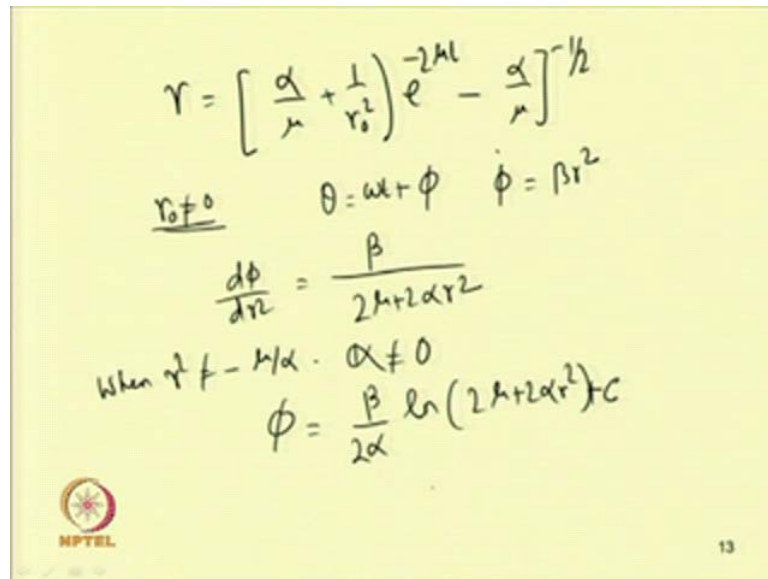 r = [ α/μ + 1/r₀² ) e^{-2μt} - α/μ ]^{-1/2}
r₀ ≠ 0 θ = ωt + ϕ ϕ̇ = βr²
dϕ/dr² = β / 2μ+2αr²
When r² ≠ - μ/α . α ≠ 0
ϕ = β/2α ln (2μ+2αr²)+C
NPTEL
13